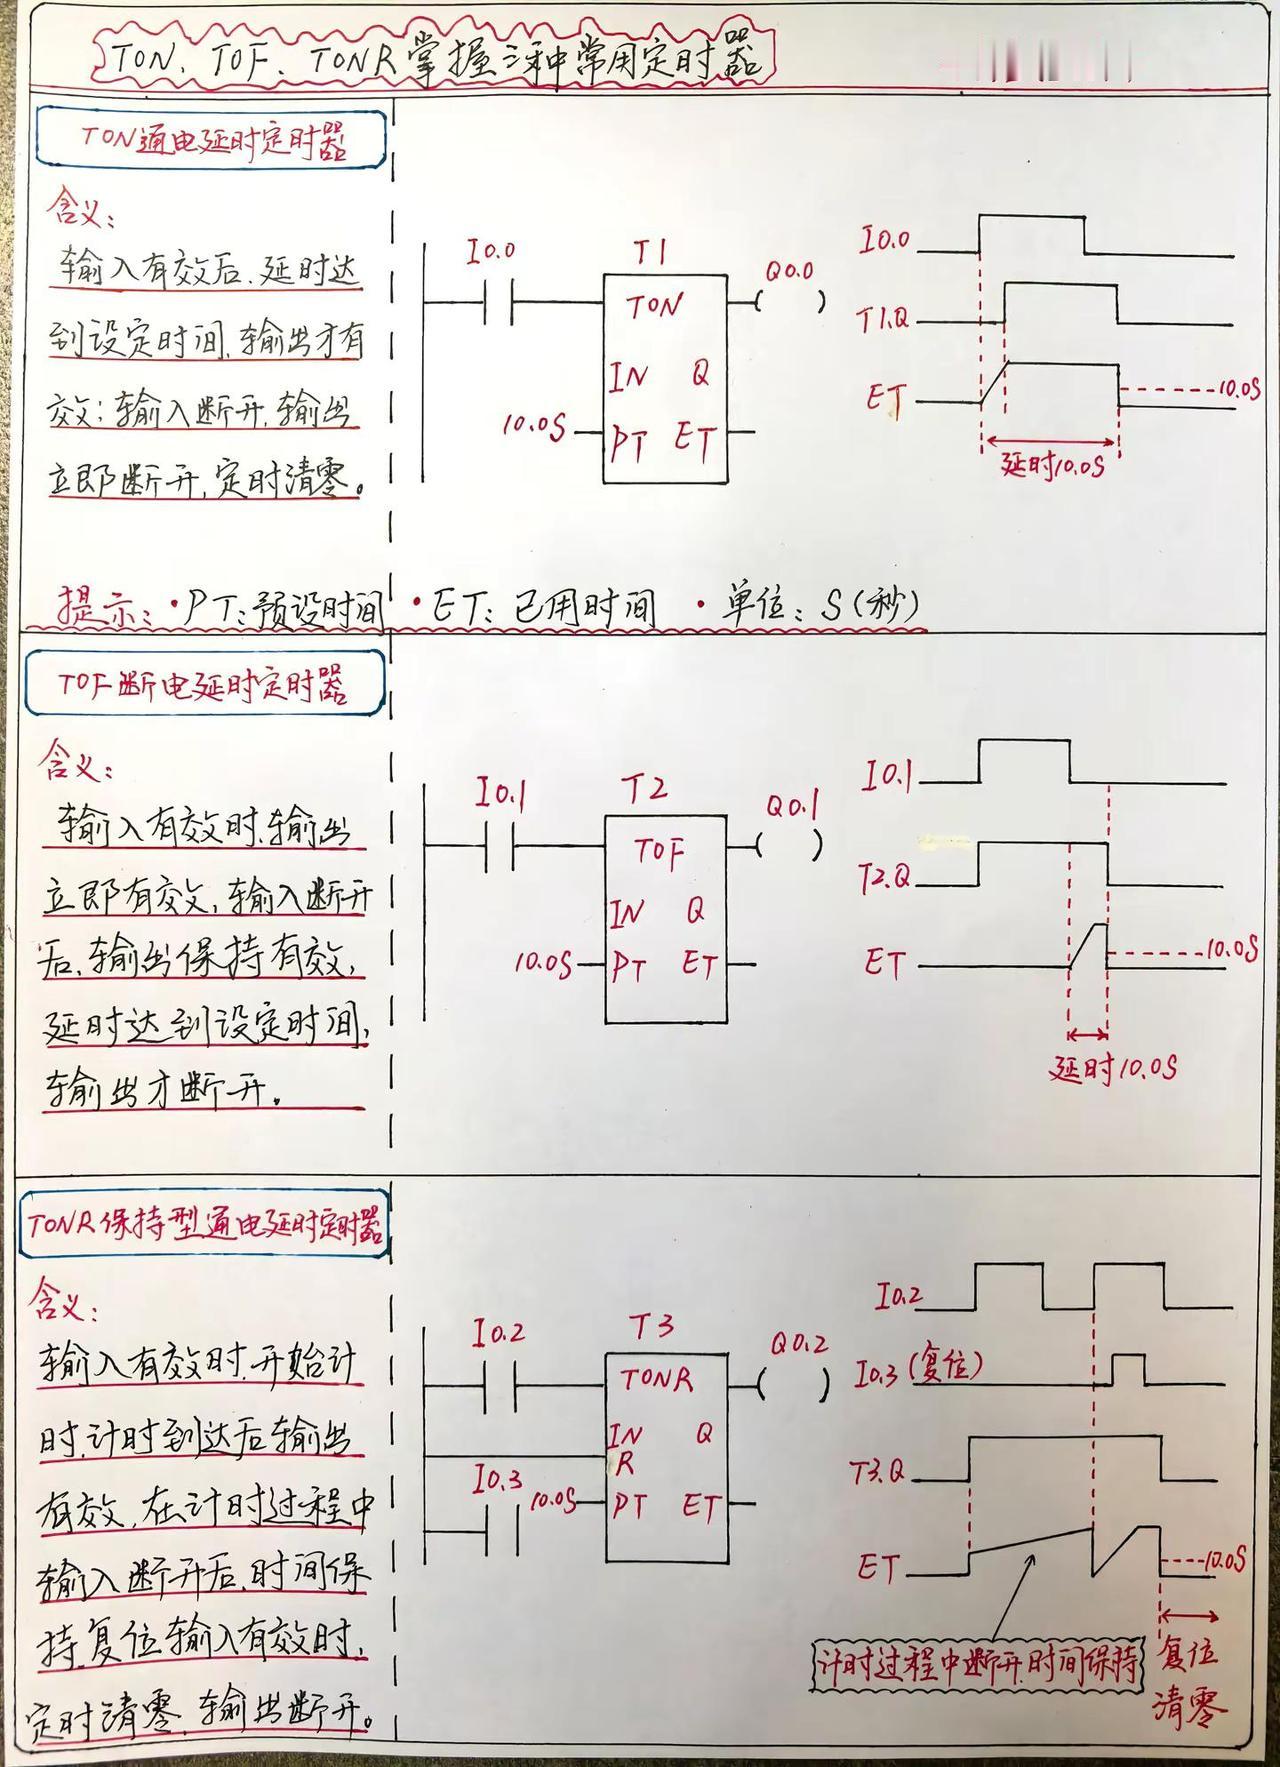 TON、TOF、TONR掌握三种常用定时器
TON通电延时定时器
含义:
输入有效后,延时达
到设定时间,输出才有
效;输入断开,输出
立即断开,定时清零。
I0.0
T1
Q0.0
TON
IN Q
10.0S
PT ET
I0.0
T1.Q
ET
10.0S
延时10.0S
提示: ·PT:预设时间 ·ET:已用时间 ·单位:S(秒)
TOF断电延时定时器
含义:
输入有效时,输出
立即有效,输入断开
后,输出保持有效,
延时达到设定时间,
输出才断开。
I0.1
T2
Q0.1
TOF
IN Q
10.0S
PT ET
I0.1
T2.Q
ET
10.0S
延时10.0S
TONR保持型通电延时定时器
含义:
输入有效时,开始计
时,计时到达后输出
有效,在计时过程中
输入断开后,时间保
持,复位输入有效时,
定时清零,输出断开。
I0.2
T3
Q0.2
TONR
IN Q
R
I0.3
10.0S
PT ET
I0.2
I0.3(复位)
T3.Q
ET
10.0S
计时过程中断开,时间保持
复位
清零